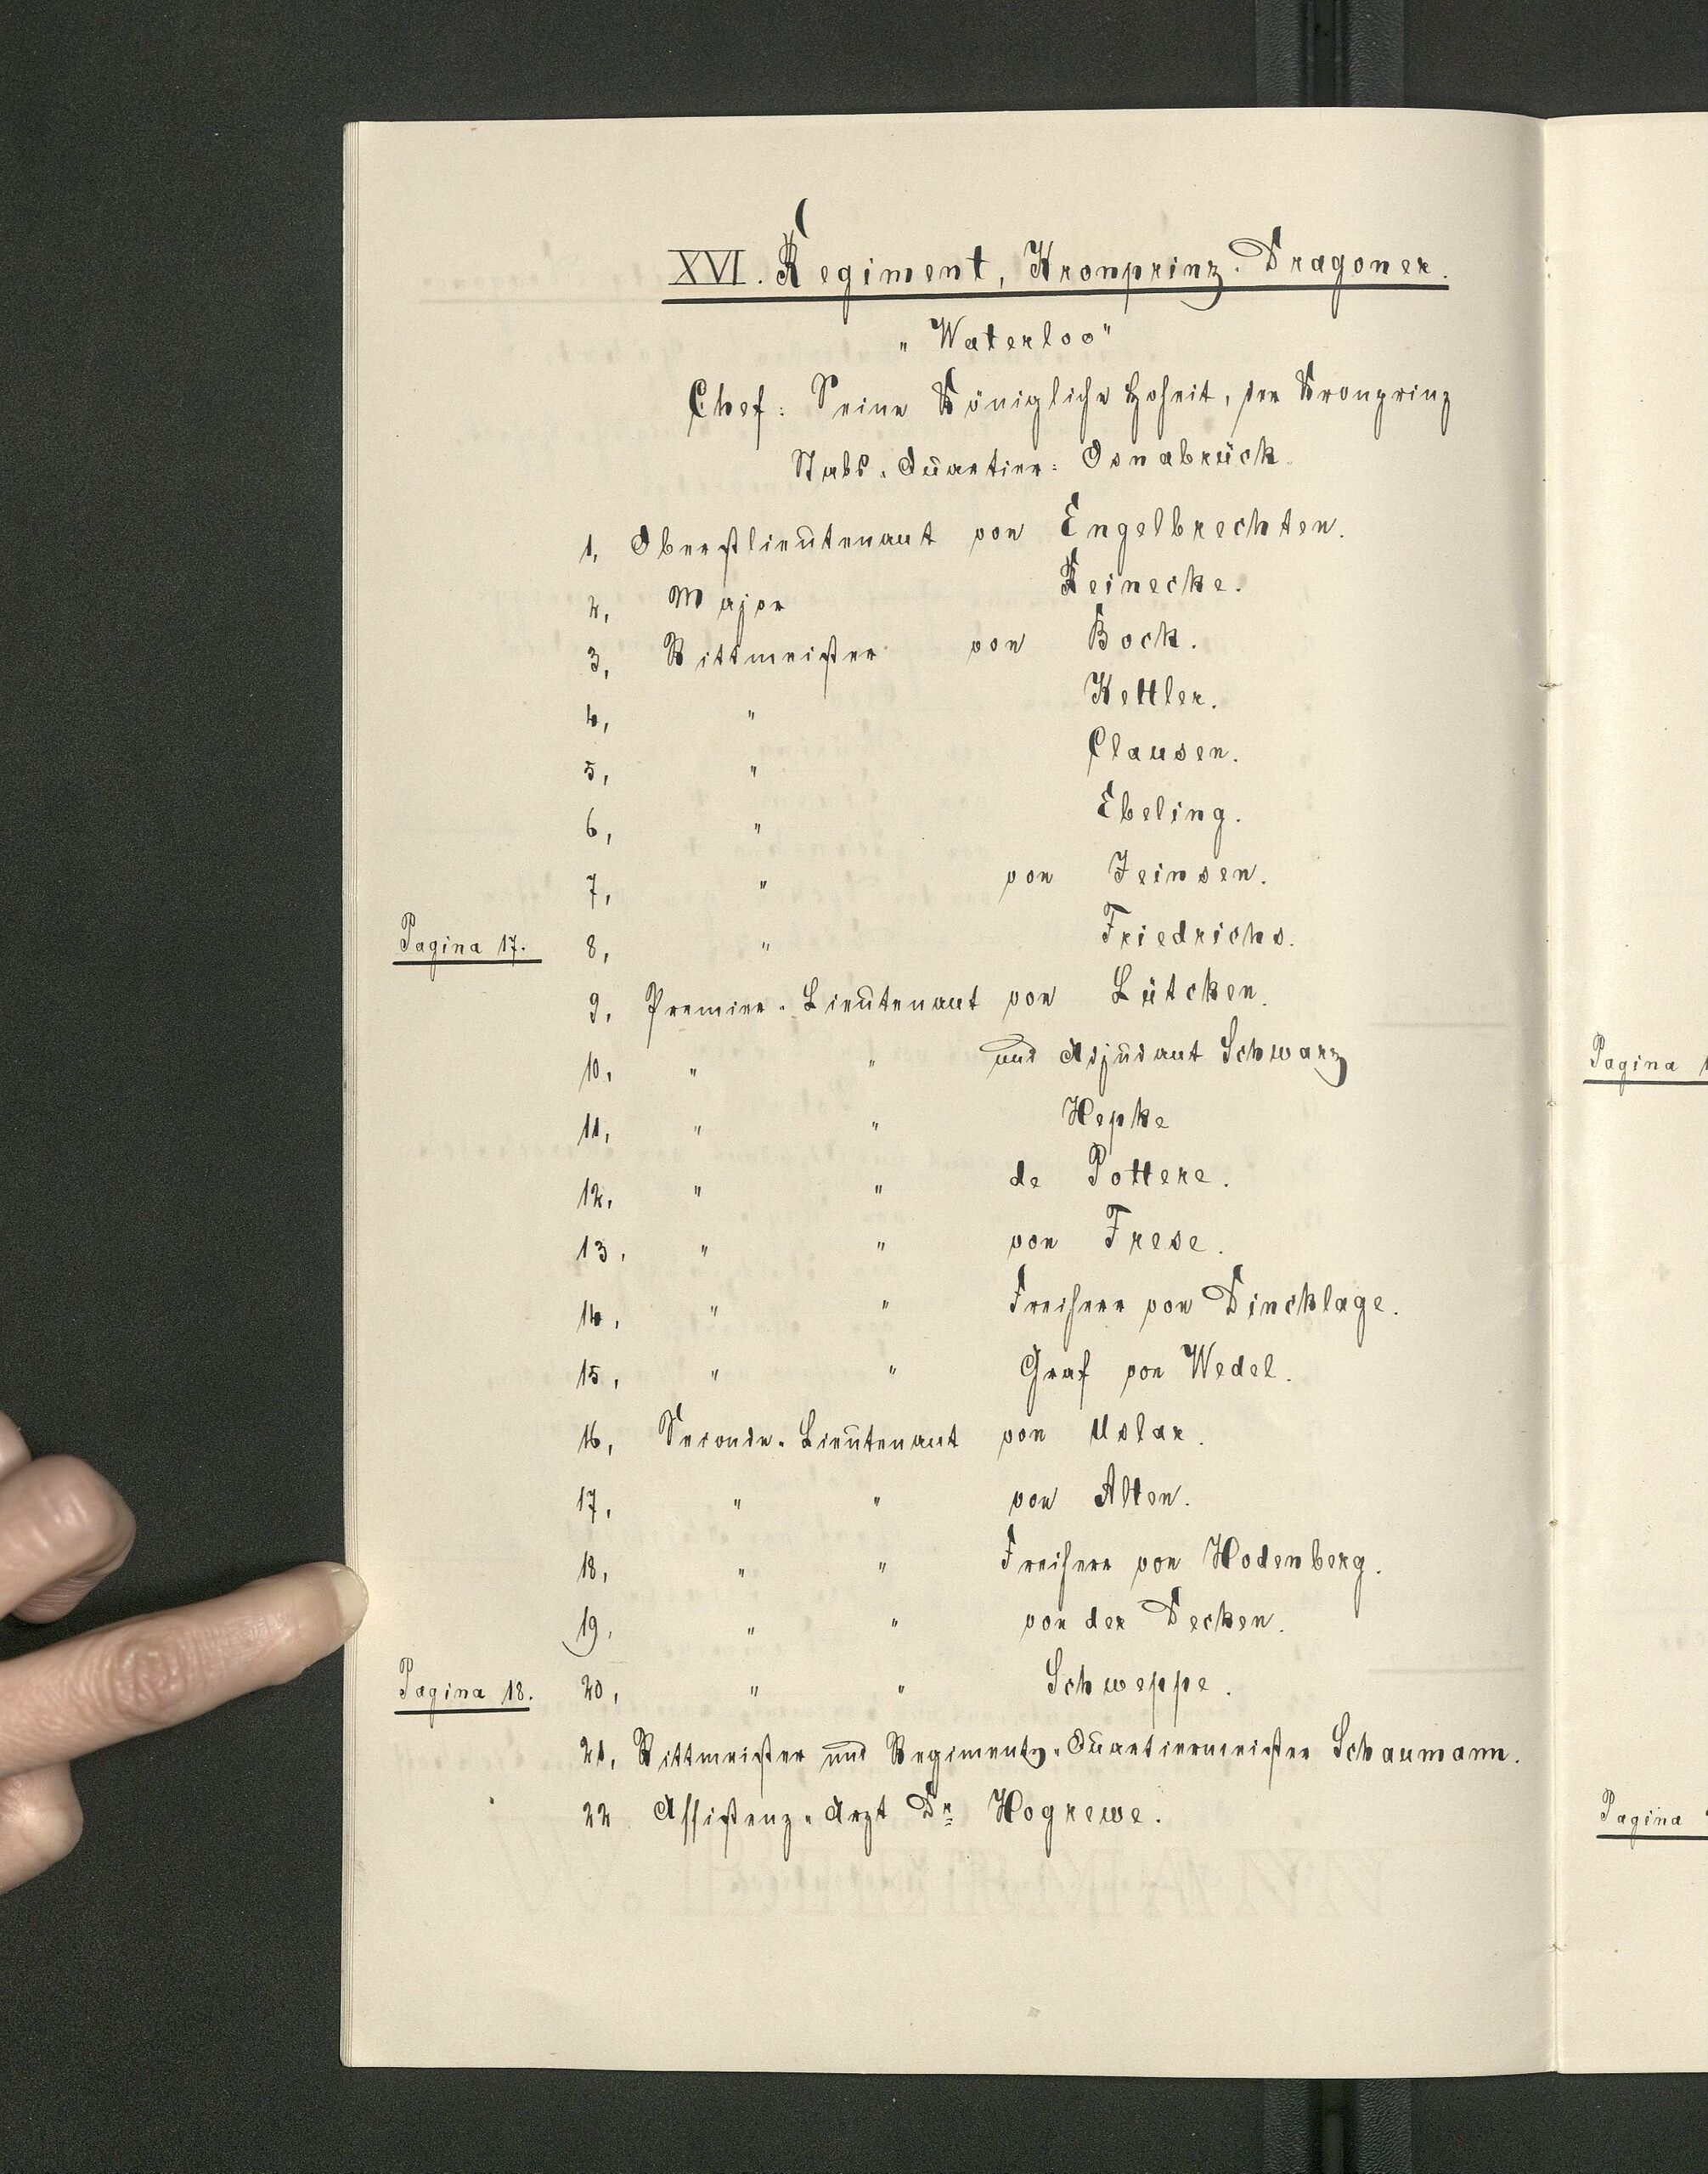 XVI. Regiment, Kronprinz-Dragoner.
"Waterloo"
Chef: Seine Königliche Hoheit, der Kronprinz
Stabs-Quartier: Osnabrück.
1, Oberstlieutenant von Engelbrechten.
2, Major Reinecke.
3, Rittmeister von Bock.
4, " Kettler.
5, " Clausen.
6, " Ebeling.
7, " von Jeinsen.
Pagina 17. 8, " Friedrichs.
9, Premier-Lieutenant von Lütcken.
10, " " und Adjudant Schwarz
11, " " Hepke
12, " " de Pottere.
13, " " von Frese.
14, " " Freiherr von Dincklage.
15, " " Graf von Wedel.
16, Seconde-Lieutenant von Uslar.
17, " " von Alten.
18, " " Freiherr von Hodenberg.
19, " " von der Decken.
Pagina 18. 20, " " Schweppe.
21, Rittmeister und Regiments-Quartiermeister Schaumann.
22 Assistenz-Arzt Dr. Hogrewe.
Pagina
Pagina